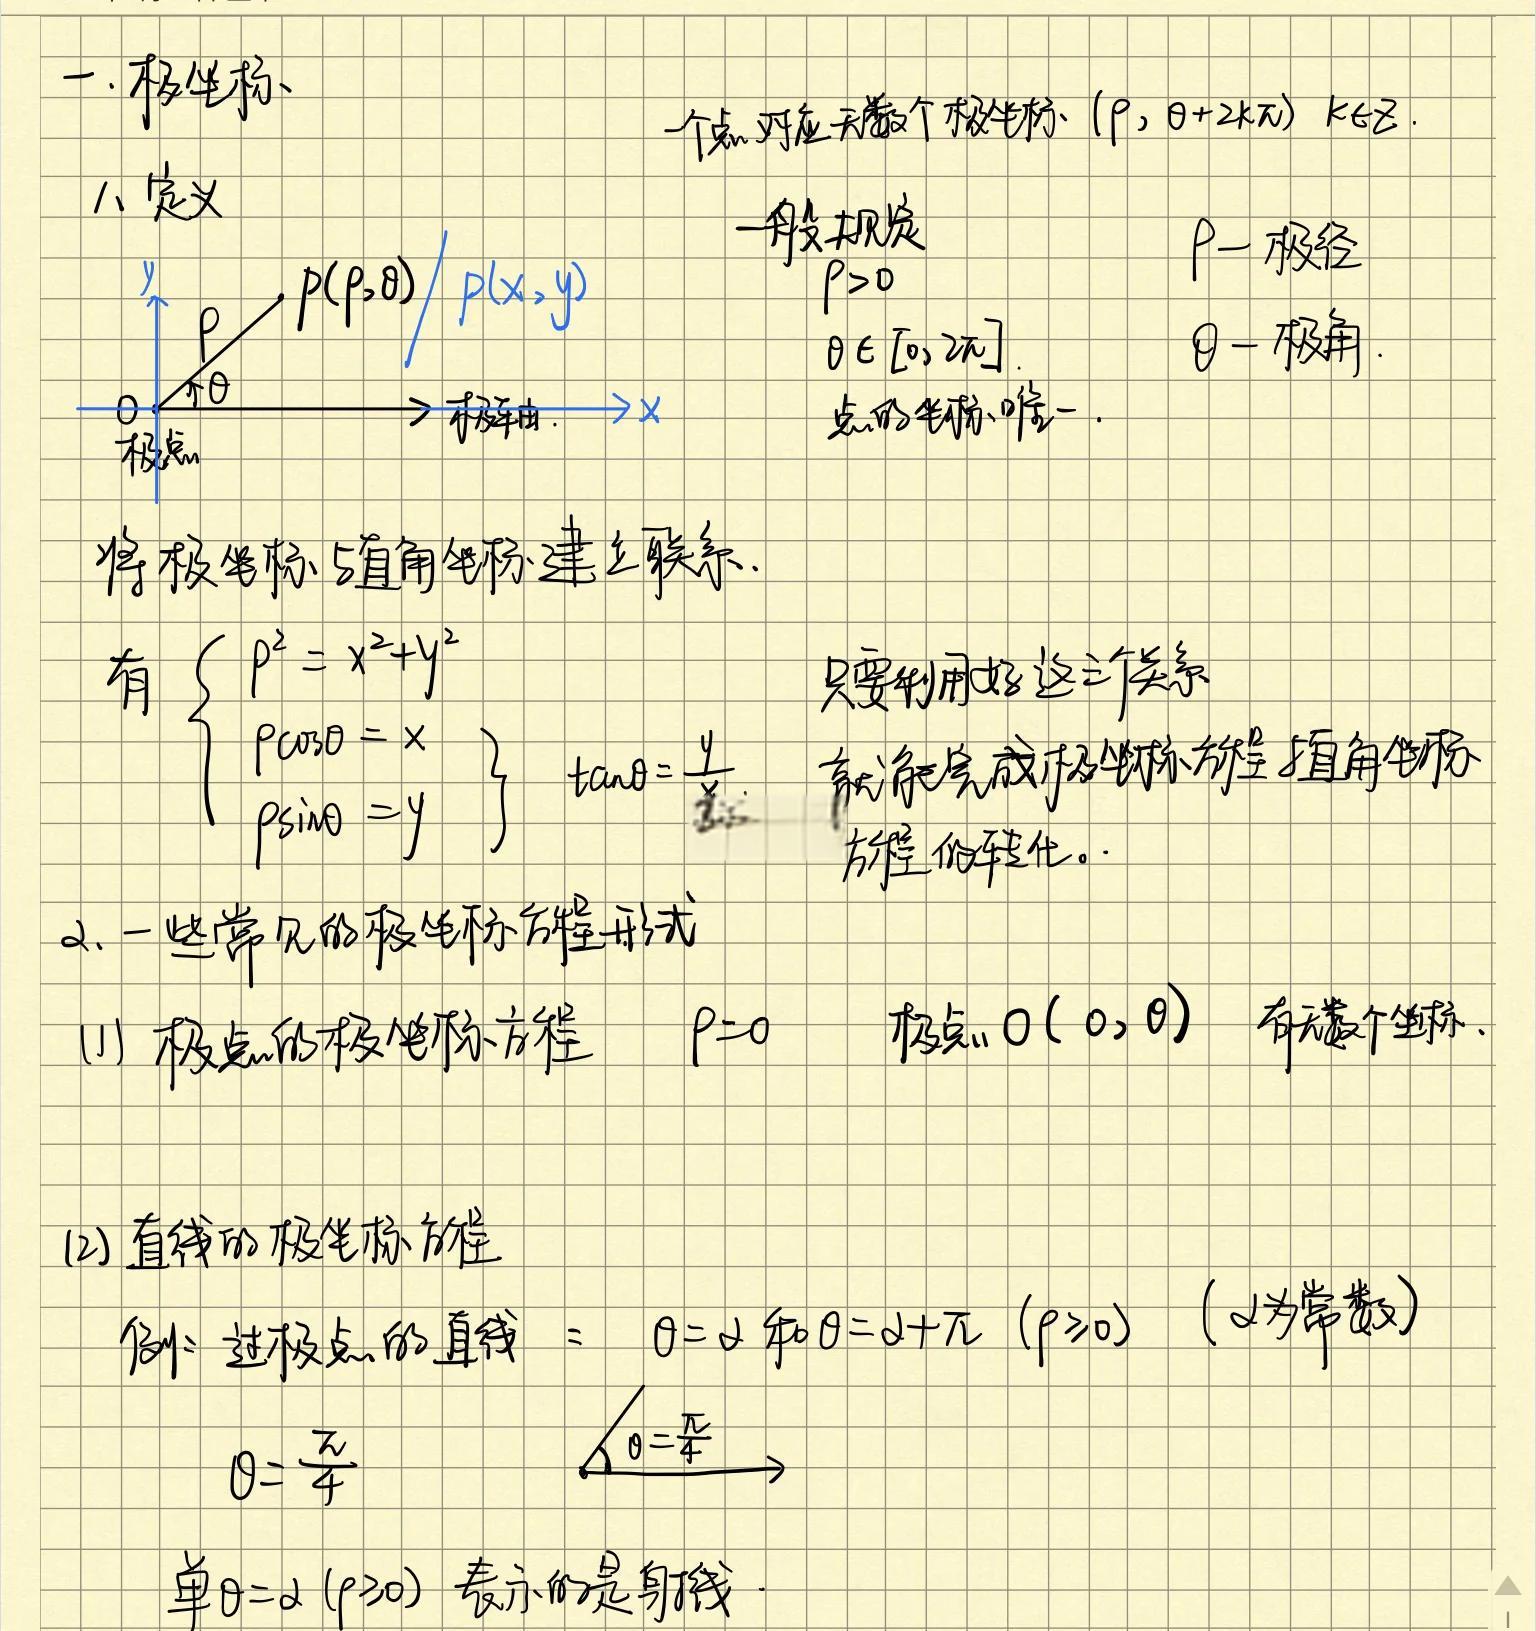 一.极坐标
一个点对应无数个极坐标 (ρ, θ+2kπ) k∈Z.
1、定义
一般规定
ρ>0
θ∈[0, 2π].
点的坐标唯一.
ρ一极径
θ一极角.
y
ρ
P(ρ,θ) / P(x,y)
θ
O
极点
极轴.
x
将极坐标与直角坐标建立联系.
有 { ρ² = x²+y²
ρcosθ = x
ρsinθ = y }
tanθ = y/x.
只要利用好这三个关系
就能完成极坐标方程与直角坐标
方程的转化。.
2、一些常见的极坐标方程形式
(1) 极点的极坐标方程 ρ=0 极点O(0, θ) 有无数个坐标.
(2) 直线的极坐标方程
例: 过极点的直线 = θ=α 和 θ=α+π (ρ≥0) (α为常数)
θ=π/4
θ=π/4
单θ=α (ρ≥0) 表示的是射线.